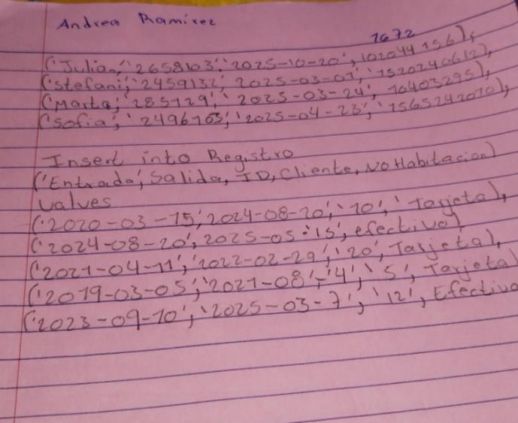 Andrea Ramirez
1672
('Julian,' '2658103', '2025-10-20', 102044756),
('stefani', '2459132, 2025-03-01', '1520240612),
('Marta', '285129', '2025-03-24', 10403295),
('Sofia', '2496763, '2025-04-23', '1565242070),
Insert into Registro
('Entrada', Salida, ID, Cliente, NoHabitacion)
values
('2020-03-15', 2024-08-20', '10', 'Tarjeta),
('2024-08-20', 2025-05-15', efectivo),
('2021-04-11', '2022-02-29', '20', Tarjeta),
('2019-03-05', '2021-08', '4', '5', Tarjeta)
('2023-09-10', '2025-03-7', '12', Efectivo